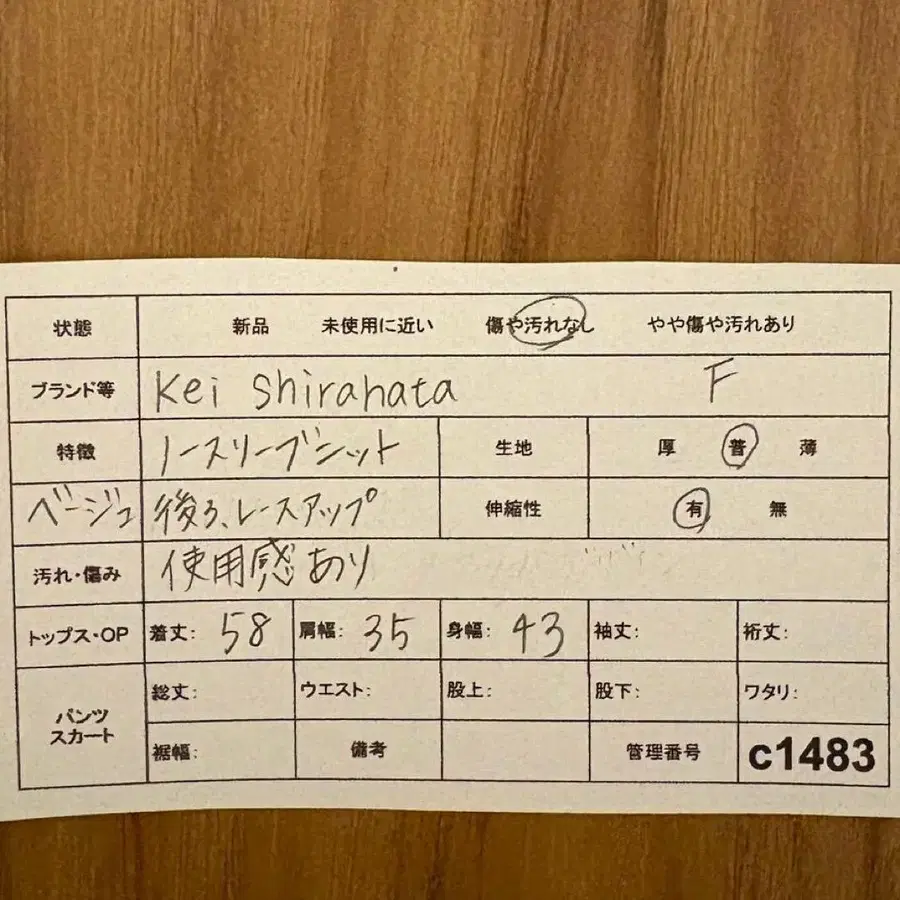 状態 新品 未使用に近い 傷や汚れなし やや傷や汚れあり
ブランド等 Kei Shirahata F
特徴 ノースリーブニット 生地 厚 普 薄
ベージュ 後ろ、レースアップ 伸縮性 有 無
汚れ・傷み 使用感あり
トップス・OP 着丈: 58 肩幅: 35 身幅: 43 袖丈: 裄丈:
パンツ スカート 総丈: ウエスト: 股上: 股下: ワタリ:
裾幅: 備考 管理番号 c1483